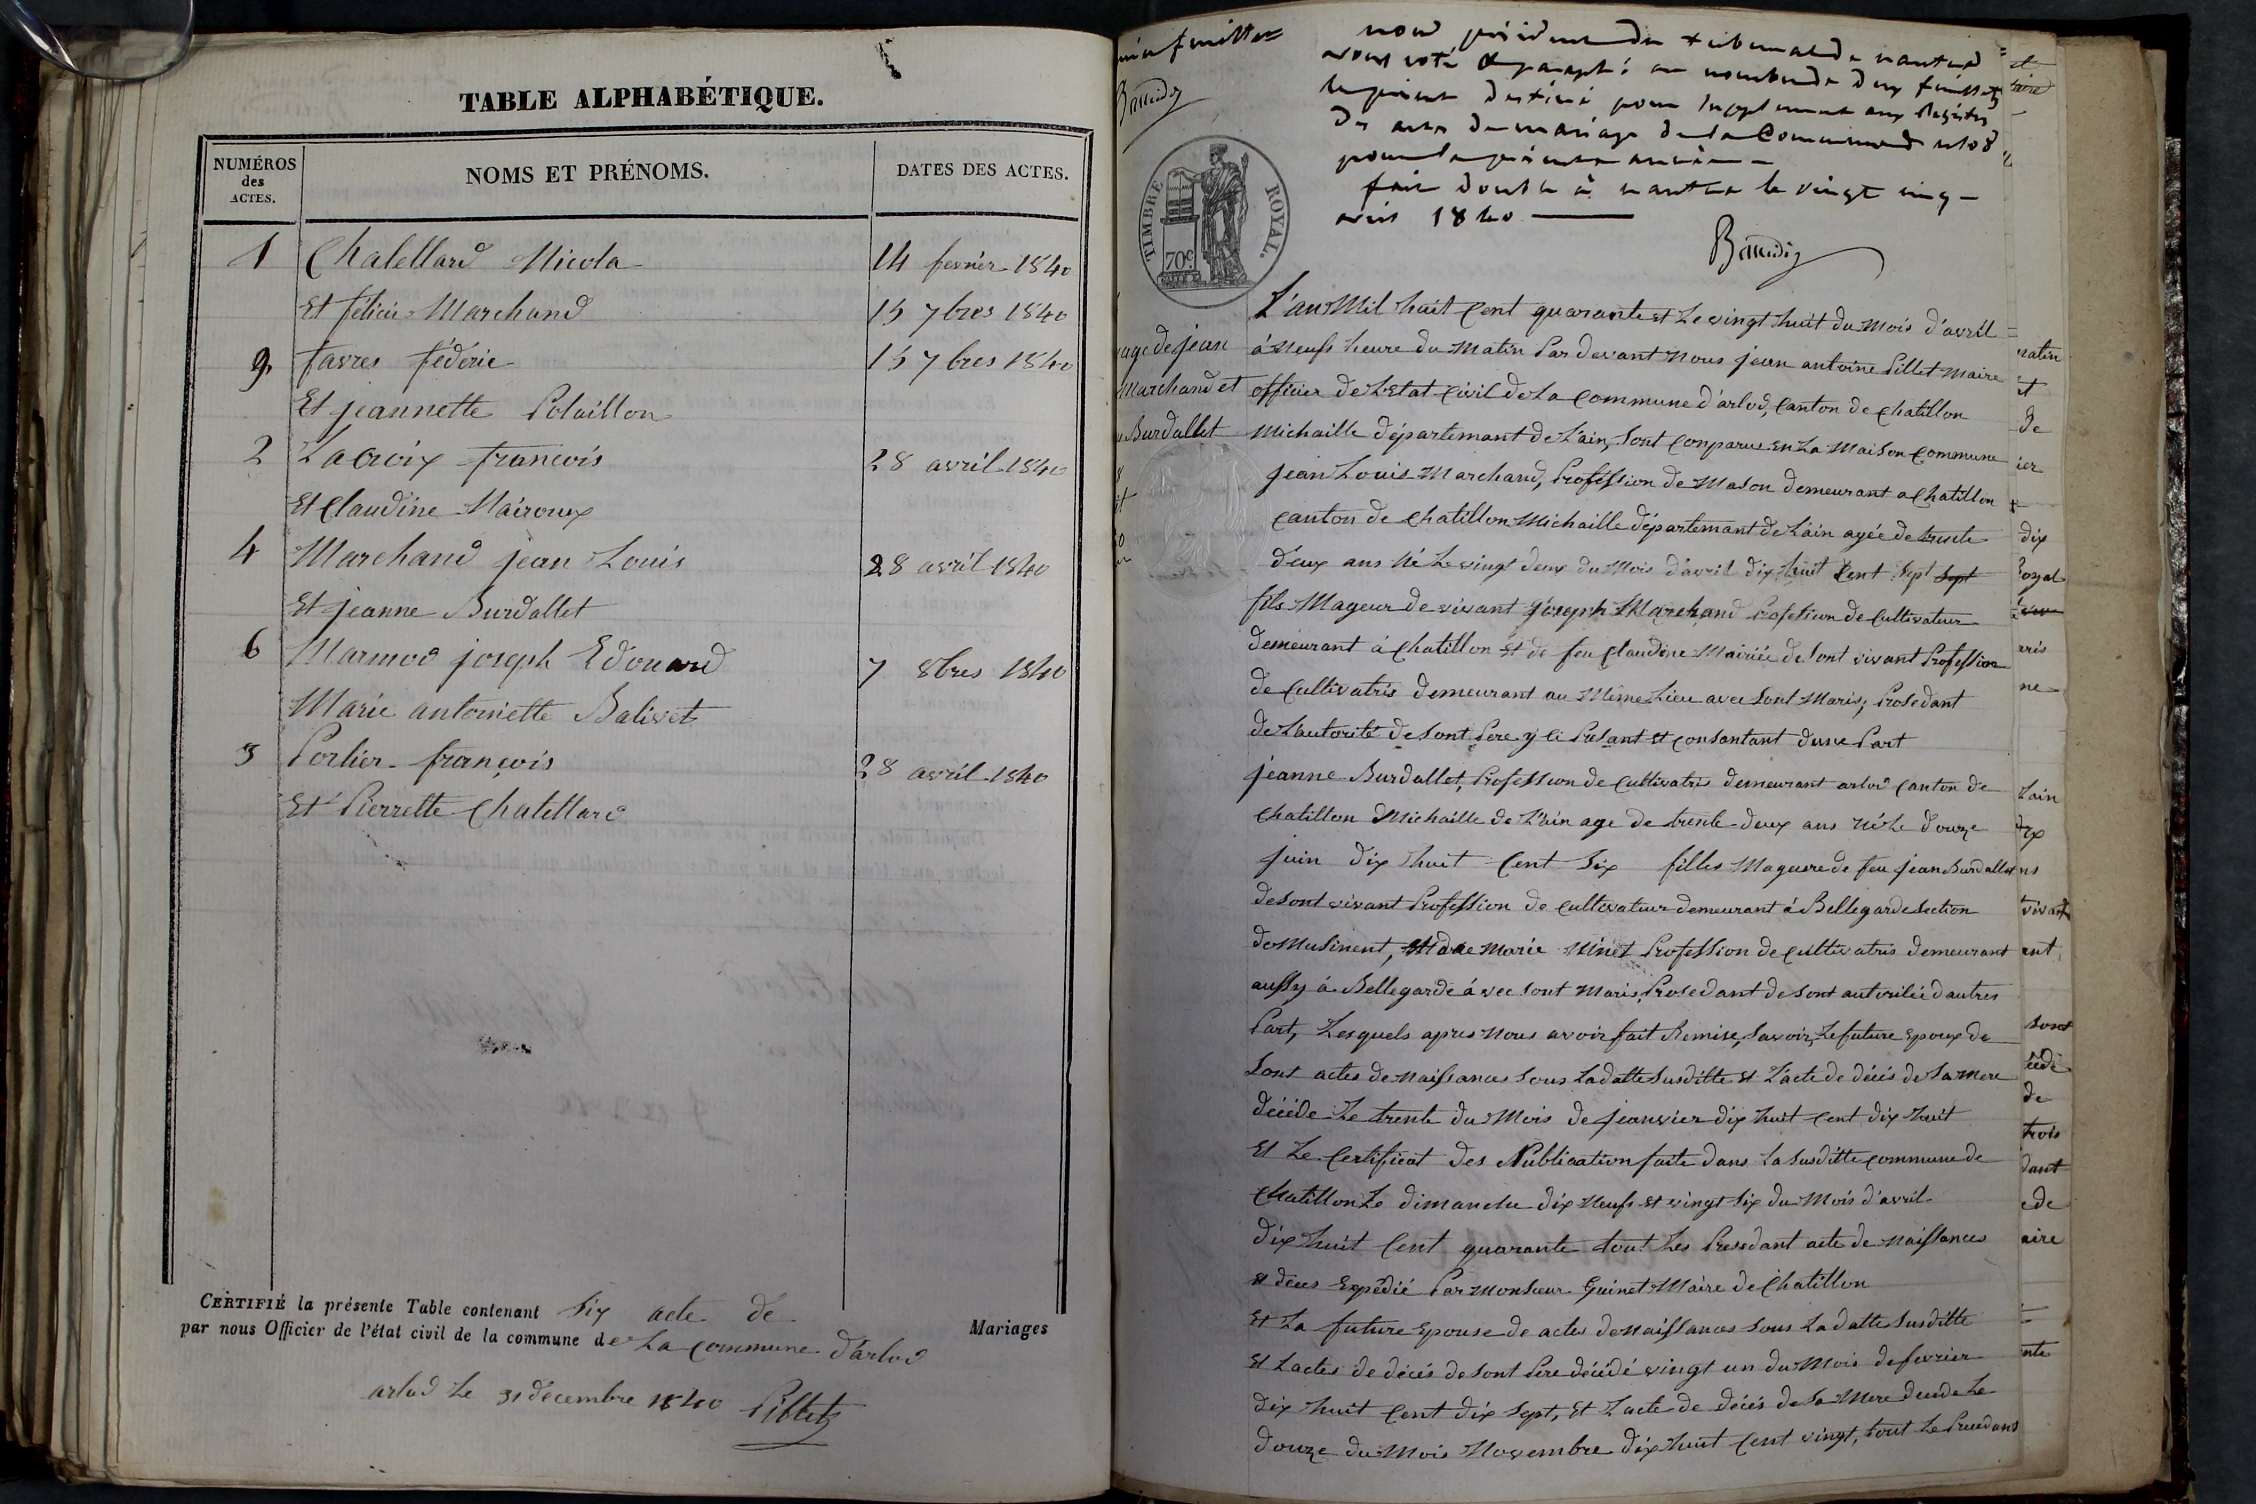 TABLE ALPHABÉTIQUE.
NUMÉROS des ACTES.
NOMS ET PRÉNOMS.
DATES DES ACTES.
1 Chatellard Nicola 14 fevrier 1840
Et félicie Marchand 15 7bres 1840
9 favres féderic 15 7bres 1840
Et jeannette Polaillon
2 Lacroix francois 28 avril 1840
Et Claudine Mairoux
4 Marchand jean Louis 28 avril 1840
Et jeanne Burdallet
6 Marmod joseph Edouard 7 8bres 1840
Marie antoinette Balivet
3 Portier françois 28 avril 1840
Et Pierrette Chatellard
CERTIFIÉ la présente Table contenant six acte de Mariages
par nous Officier de l'état civil de la commune de La Commune d'arlod
arlod Le 31 décembre 1840 Pillet
nous président du tribunal de nantua
avons coté & paraphé au nombre de deux feuillets
le présent destiné pour supplement aux Registres
des actes de mariage de la Commune d'arlod
pour la présente année
fait double à nantua le vingt cinq
avril 1840
TIMBRE ROYAL.
70c
age de jean
Marchand et
Burdallet
L'an Mil huit Cent quarante et Le vingt huit du Mois d'avril
à Neufs heure du Matin Par devant Nous jean antoine Pillet Maire
officier de L'Etat Civil de La Commune d'arlod, Canton de Chatillon
Michaille départemant de L'ain, Sont Conparus En La Maison Commune
jean Louis Marchand, Profession de Mason demeurant a Chatillon
Canton de Chatillon Michaille départemant de L'ain agée de trente
deux ans Né Le vingt deux du Mois d'avril dix huit Cent Sept Sept
fils Mageur de vivant joseph Marchand Profession de Cultivateur
demeurant à Chatillon Et de feu Claudine Mairiée de Sont vivant Profession
de Cultivatris demeurant au Même Lieu avec Sont Maris, Prosedant
de L'autorité de Sont Pere y Ci Présant Et Consantant dune Part
jeanne Burdallet, Profession de Cultivatris demeurant arlod Canton de
Chatillon Michaille de L'ain age de trente-deux ans Né Le douze
juin dix huit Cent Six filles Mageure de feu jean Burdallet
de Sont vivant Profession de Cultivateur demeurant à Bellegarde Section
de Musinent, Et de Marie Vinet Profession de Cultivatris demeurant
aussy à Bellegarde à vec Sont Maris, Prosedant de Sont autorilié d'autres
Part, Lesquels apres Nous avoir fait Remise, Savoir, Le future Epoux de
Sont actes de Naissances Sous La datte Susditte Et L'acte de décés de Sa mere
décéde Le trente du Mois de jeanvier dix huit Cent dix huit
Et Le Certificat des Publication faite dans La Susditte Commune de
Chatillon Le dimanche dix Neufs Et vingt Six du Mois d'avril
dix huit Cent quarante tout Les Presedant acte de Naissances
Et déces Expédié Par Monsieur Guinet Maire de Chatillon
Et La future Epouse de actes de Naissances Sous La datte Susditte
Et L'actes de décés de Sont Pere décédé vingt un du Mois de fevrier
dix huit Cent dix Sept, Et L'acte de décés de Sa Mere décéde Le
douze du Mois Novembre dix huit Cent vingt, tout Le Précedans